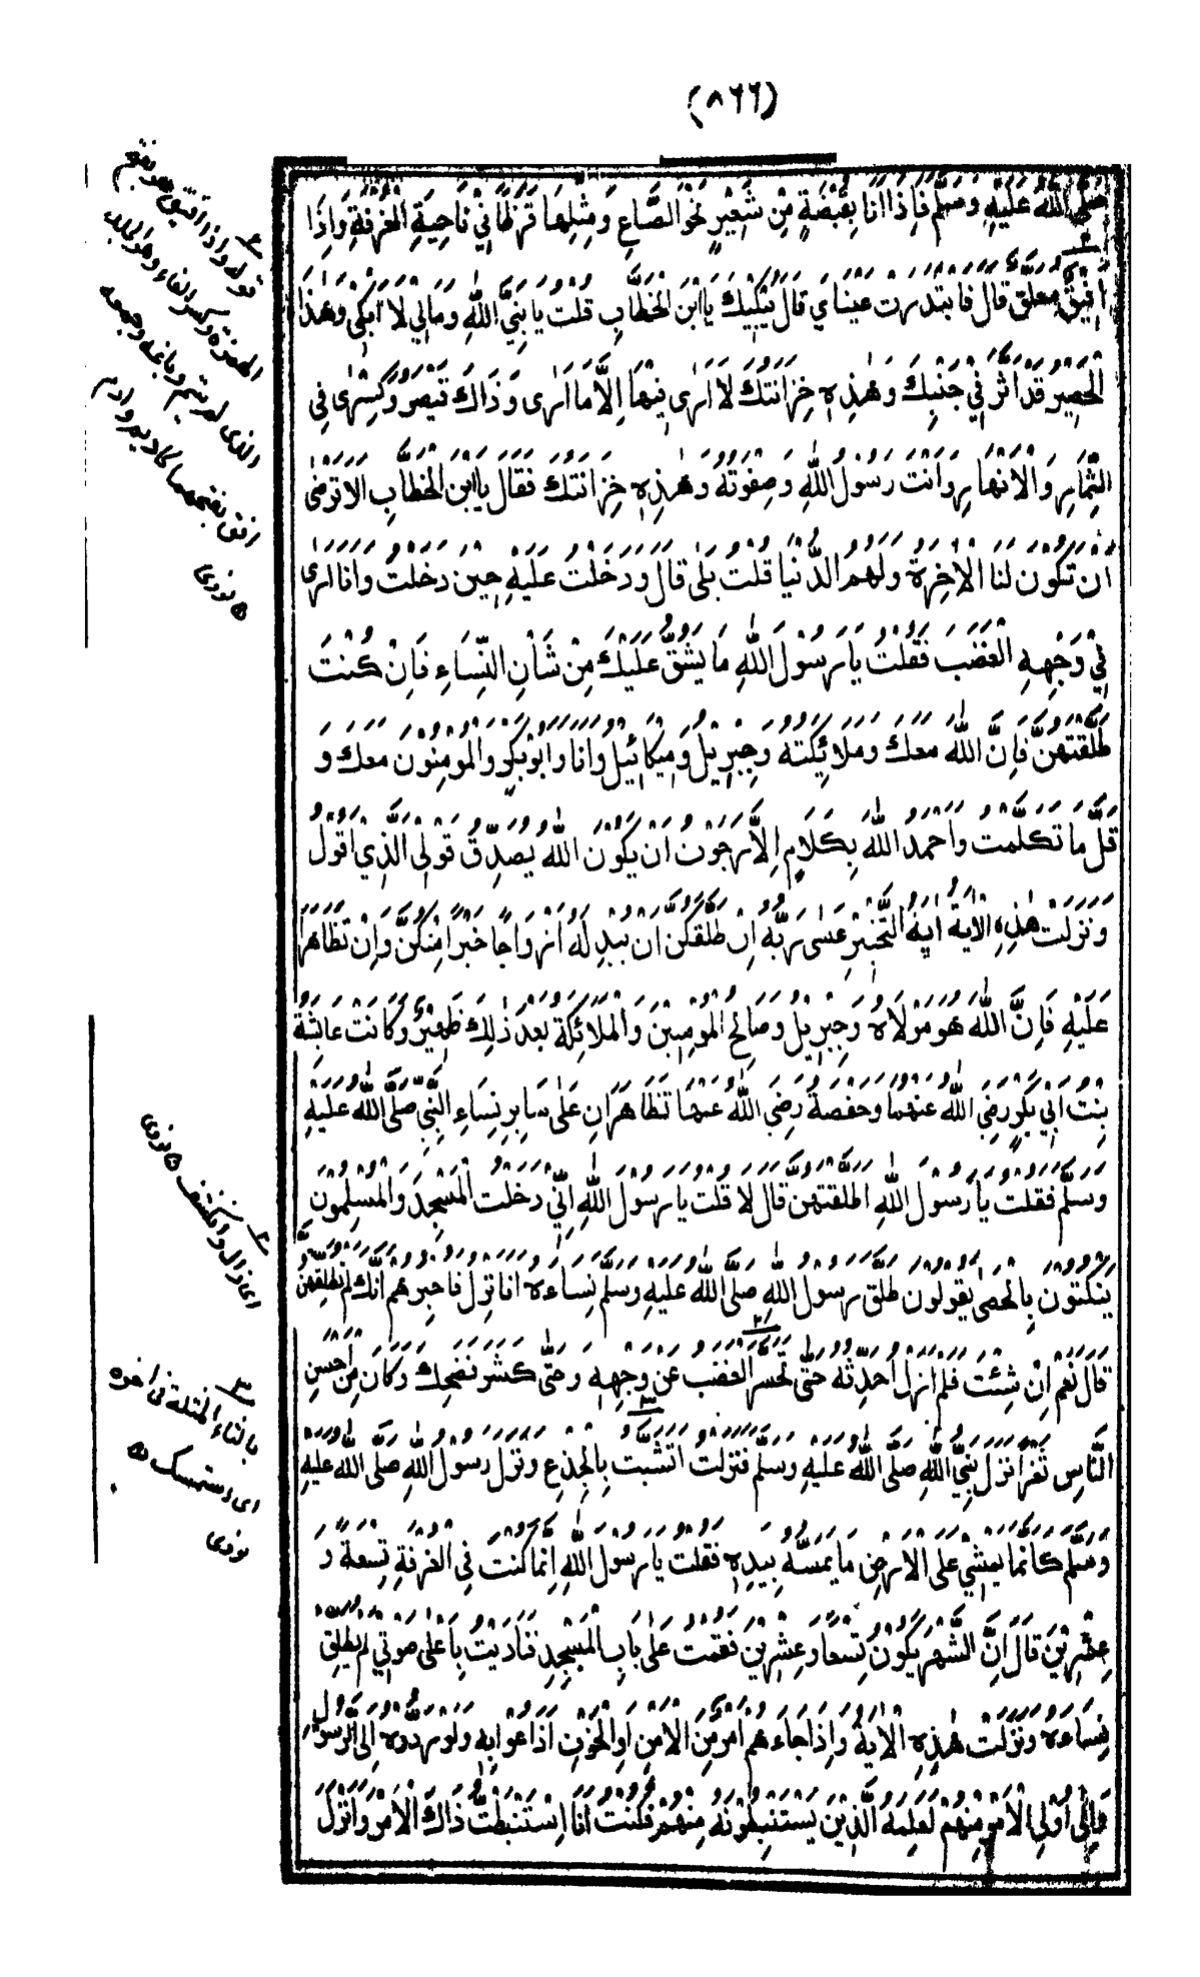 (٨٦٦)
صَلَّى اللَّهُ عَلَيْهِ وَسَلَّمَ فَإِذَا أَنَا بِقُبْضَةٍ مِنْ شَعِيرٍ نَحْوَ الصَّاعِ وَمِثْلِهَا قَرَظًا فِي نَاحِيَةِ الْغُرْفَةِ وَإِذَا
أَفِيقٌ مُعَلَّقٌ قَالَ فَابْتَدَرَتْ عَيْنَايَ قَالَ مَا يُبْكِيكَ يَا ابْنَ الْخَطَّابِ قُلْتُ يَا نَبِيَّ اللَّهِ وَمَا لِي لَا أَبْكِي وَهَذَا
الْحَصِيرُ قَدْ أَثَّرَ فِي جَنْبِكَ وَهَذِهِ خِزَانَتُكَ لَا أَرَى فِيهَا إِلَّا مَا أَرَى وَذَاكَ قَيْصَرُ وَكِسْرَى فِي
الثِّمَارِ وَالْأَنْهَارِ وَأَنْتَ رَسُولُ اللَّهِ وَصَفْوَتُهُ وَهَذِهِ خِزَانَتُكَ فَقَالَ يَا ابْنَ الْخَطَّابِ أَلَا تَرْضَى
أَنْ تَكُونَ لَنَا الْآخِرَةُ وَلَهُمُ الدُّنْيَا قُلْتُ بَلَى قَالَ وَدَخَلْتُ عَلَيْهِ حِينَ دَخَلْتُ وَأَنَا أَرَى
فِي وَجْهِهِ الْغَضَبَ فَقُلْتُ يَا رَسُولَ اللَّهِ مَا يَشُقُّ عَلَيْكَ مِنْ شَأْنِ النِّسَاءِ فَإِنْ كُنْتَ
طَلَّقْتَهُنَّ فَإِنَّ اللَّهَ مَعَكَ وَمَلَائِكَتَهُ وَجِبْرِيلُ وَمِيكَائِيلُ وَأَنَا وَأَبُو بَكْرٍ وَالْمُؤْمِنُونَ مَعَكَ وَ
قَلَّ مَا تَكَلَّمْتُ وَأَحْمَدُ اللَّهَ بِكَلَامٍ إِلَّا رَجَوْتُ أَنْ يَكُونَ اللَّهُ يُصَدِّقُ قَوْلِي الَّذِي أَقُولُ
وَنَزَلَتْ هَذِهِ الْآيَةُ آيَةُ التَّخْيِيرِ عَسَى رَبُّهُ إِنْ طَلَّقَكُنَّ أَنْ يُبْدِلَهُ أَزْوَاجًا خَيْرًا مِنْكُنَّ وَإِنْ تَظَاهَرَا
عَلَيْهِ فَإِنَّ اللَّهَ هُوَ مَوْلَاهُ وَجِبْرِيلُ وَصَالِحُ الْمُؤْمِنِينَ وَالْمَلَائِكَةُ بَعْدَ ذَلِكَ ظَهِيرٌ وَكَانَتْ عَائِشَةُ
بِنْتُ أَبِي بَكْرٍ رَضِيَ اللَّهُ عَنْهُمَا وَحَفْصَةُ رَضِيَ اللَّهُ عَنْهَا تَظَاهَرَانِ عَلَى سَائِرِ نِسَاءِ النَّبِيِّ صَلَّى اللَّهُ عَلَيْهِ
وَسَلَّمَ فَقُلْتُ يَا رَسُولَ اللَّهِ أَطَلَّقْتَهُنَّ قَالَ لَا قُلْتُ يَا رَسُولَ اللَّهِ إِنِّي دَخَلْتُ الْمَسْجِدَ وَالْمُسْلِمُونَ
يَنْكُتُونَ بِالْحَصَى يَقُولُونَ طَلَّقَ رَسُولُ اللَّهِ صَلَّى اللَّهُ عَلَيْهِ وَسَلَّمَ نِسَاءَهُ أَفَأَنْزِلُ فَأُخْبِرُهُمْ أَنَّكَ لَمْ تُطَلِّقْهُنَّ
قَالَ نَعَمْ إِنْ شِئْتَ فَلَمْ أَزَلْ أُحَدِّثُهُ حَتَّى تَحَسَّرَ الْغَضَبُ عَنْ وَجْهِهِ وَحَتَّى كَشَرَ فَضَحِكَ وَكَانَ مِنْ أَحْسَنِ
النَّاسِ ثَغْرًا نَزَلَ نَبِيُّ اللَّهِ صَلَّى اللَّهُ عَلَيْهِ وَسَلَّمَ فَنَزَلْتُ أَتَشَبَّثُ بِالْجِذْعِ وَنَزَلَ رَسُولُ اللَّهِ صَلَّى اللَّهُ عَلَيْهِ
وَسَلَّمَ كَأَنَّمَا يَمْشِي عَلَى الْأَرْضِ مَا يَمَسُّهُ بِيَدِهِ فَقُلْتُ يَا رَسُولَ اللَّهِ إِنَّمَا كُنْتَ فِي الْغُرْفَةِ تِسْعَةً وَ
عِشْرِينَ قَالَ إِنَّ الشَّهْرَ يَكُونُ تِسْعًا وَعِشْرِينَ فَقُمْتُ عَلَى بَابِ الْمَسْجِدِ فَنَادَيْتُ بِأَعْلَى صَوْتِي لَمْ يُطَلِّقْ
نِسَاءَهُ وَنَزَلَتْ هَذِهِ الْآيَةُ وَإِذَا جَاءَهُمْ أَمْرٌ مِنَ الْأَمْنِ أَوِ الْخَوْفِ أَذَاعُوا بِهِ وَلَوْ رَدُّوهُ إِلَى الرَّسُولِ
وَإِلَى أُولِي الْأَمْرِ مِنْهُمْ لَعَلِمَهُ الَّذِينَ يَسْتَنْبِطُونَهُ مِنْهُمْ فَكُنْتُ أَنَا اسْتَنْبَطْتُ ذَاكَ الْأَمْرَ وَأَنْزَلَ
قوله واذا افيق هو بفتح
الهمزة وكسر الفاء وهو الجلد
الذى لم يتم دباغه وجمعه
افق بفتحهما كاديم وادم
نووى
٢
اى زال وانكشف نووى
٣
بالثاء المثلثة فى اخره
اى استمسك به
نووى